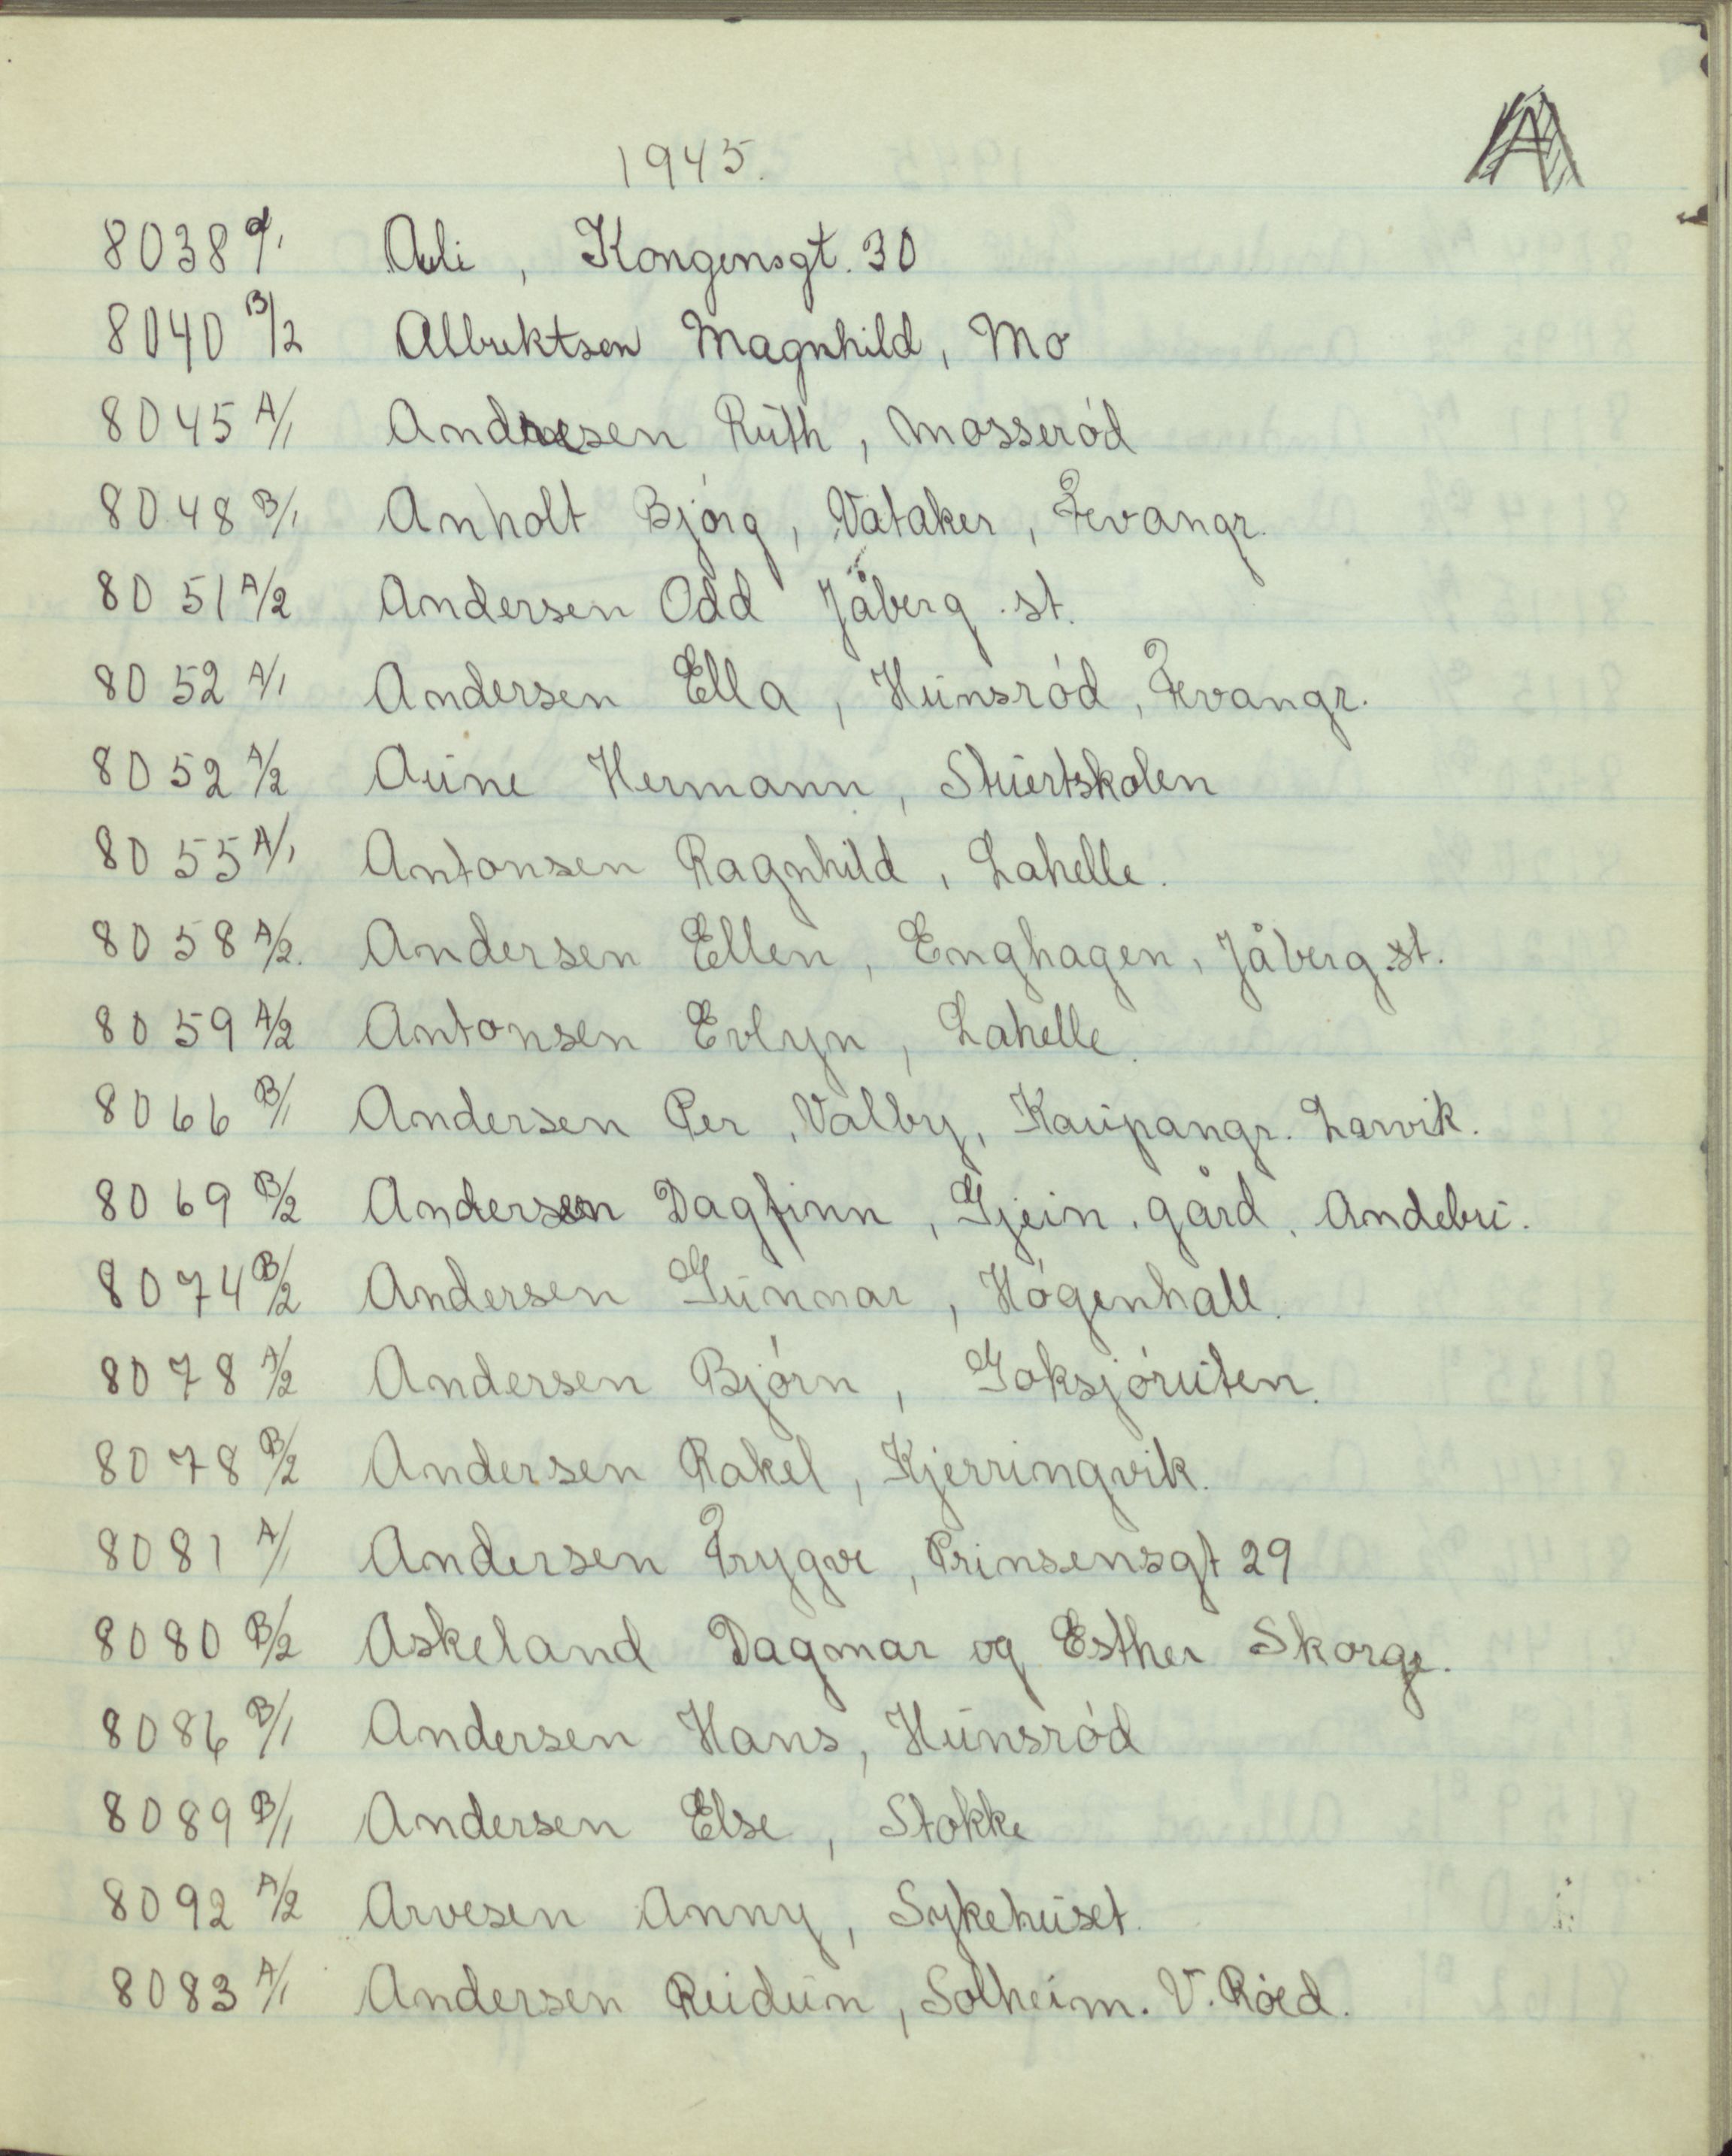 A
1945.
8038 A/1 Auli, Kongensgt. 30
8040 B/2 Albrektsen Magnhild, Mo
8045 A/1 Andresen Ruth, Mosserød
8048 B/1 Anholt Bjørg, Vataker, Tevangr.
8051 A/2 Andersen Odd Jåberg st.
8052 A/1 Andersen Ella, Hunsrød, Tevangr.
8052 A/2 Aune Hermann, Stuertskolen
8055 A/1 Antonsen Ragnhild, Lahelle.
8058 A/2. Andersen Ellen, Enghagen, Jåberg st.
8059 A/2 Antonsen Evlyn, Lahelle.
8066 B/1 Andersen Per, Valby, Kaupangr. Larvik.
8069 B/2 Andersen Dagfinn, Gjein, gård, Andebu.
8074 B/2 Andersen Gunnar, Høgenhall.
8078 A/2 Andersen Bjørn, Goksjøruten.
8078 B/2 Andersen Rakel, Kjerringvik.
8081 A/1 Andersen Trygve, Prinsensgt 29
8080 B/2 Askeland Dagmar og Esther Skorge.
8086 B/1 Andersen Hans, Hunsrød
8089 B/1 Andersen Else, Stokke
8092 A/2 Arvesen Anny, Sykehuset.
8083 A/1 Andersen Reidun, Solheim. V. Røed.